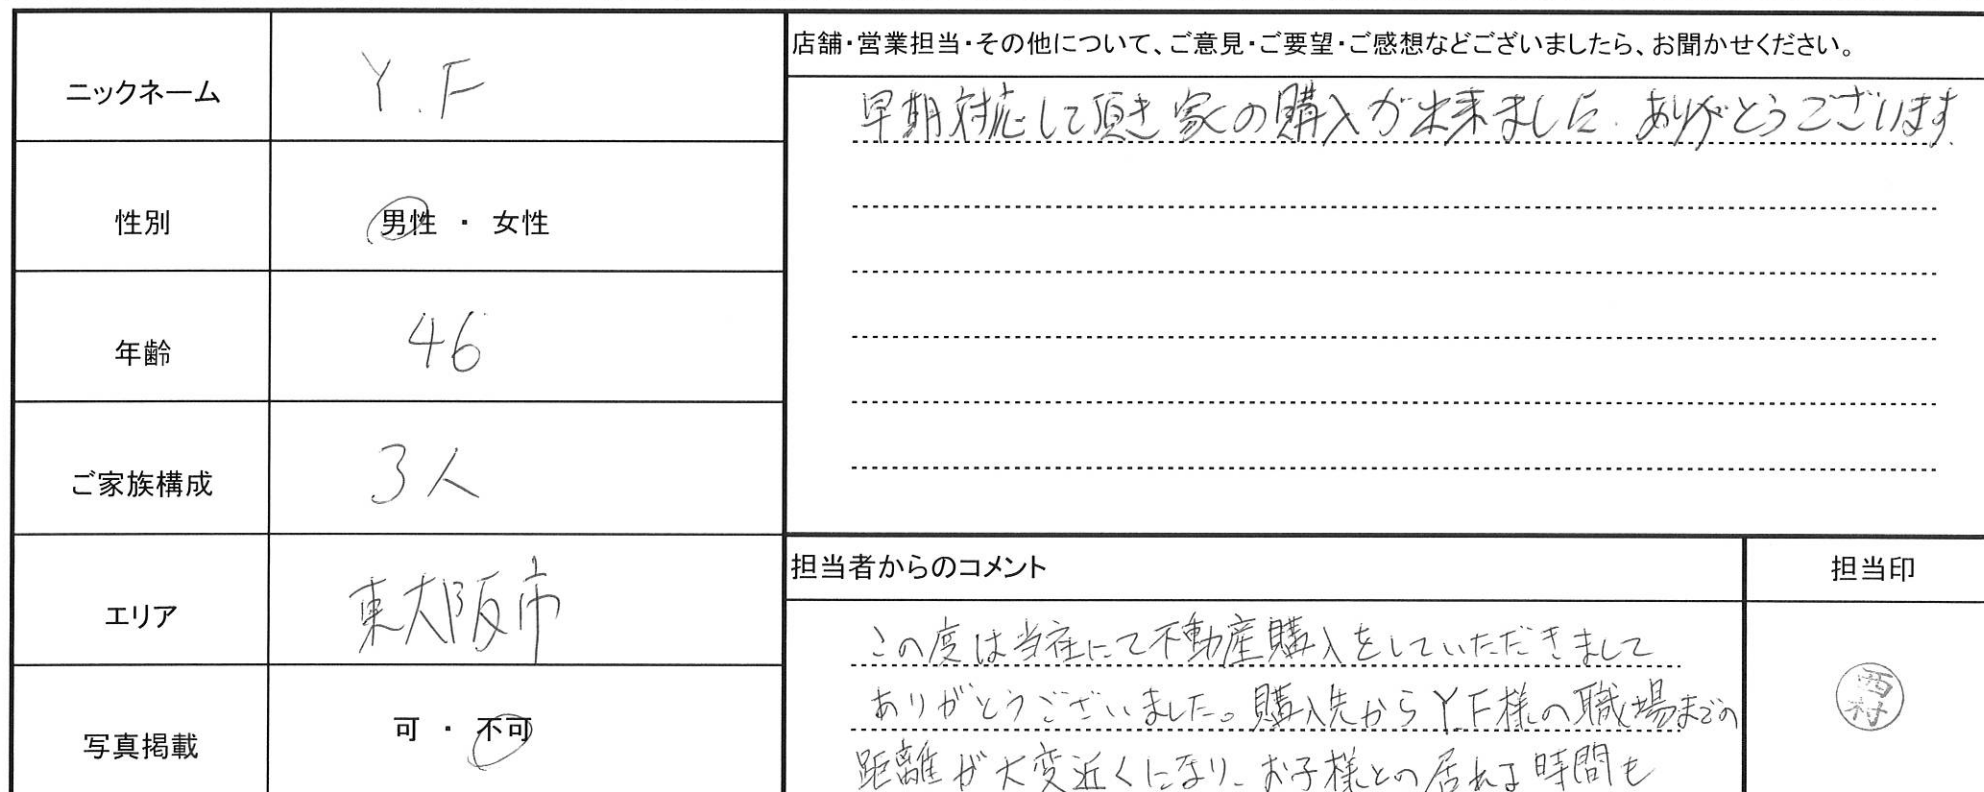 ニックネーム
Y.F
性別
男性 ・ 女性
年齢
46
ご家族構成
3人
エリア
東大阪市
写真掲載
可 ・ 不可
店舗・営業担当・その他について、ご意見・ご要望・ご感想などございましたら、お聞かせください。
早期対応して頂き家の購入が出来ました. ありがとうございます
担当者からのコメント
この度は当社にて不動産購入をしていただきまして
ありがとうございました。購入先からY.F様の職場までの
距離が大変近くになり、お子様との居れる時間も
担当印
西村